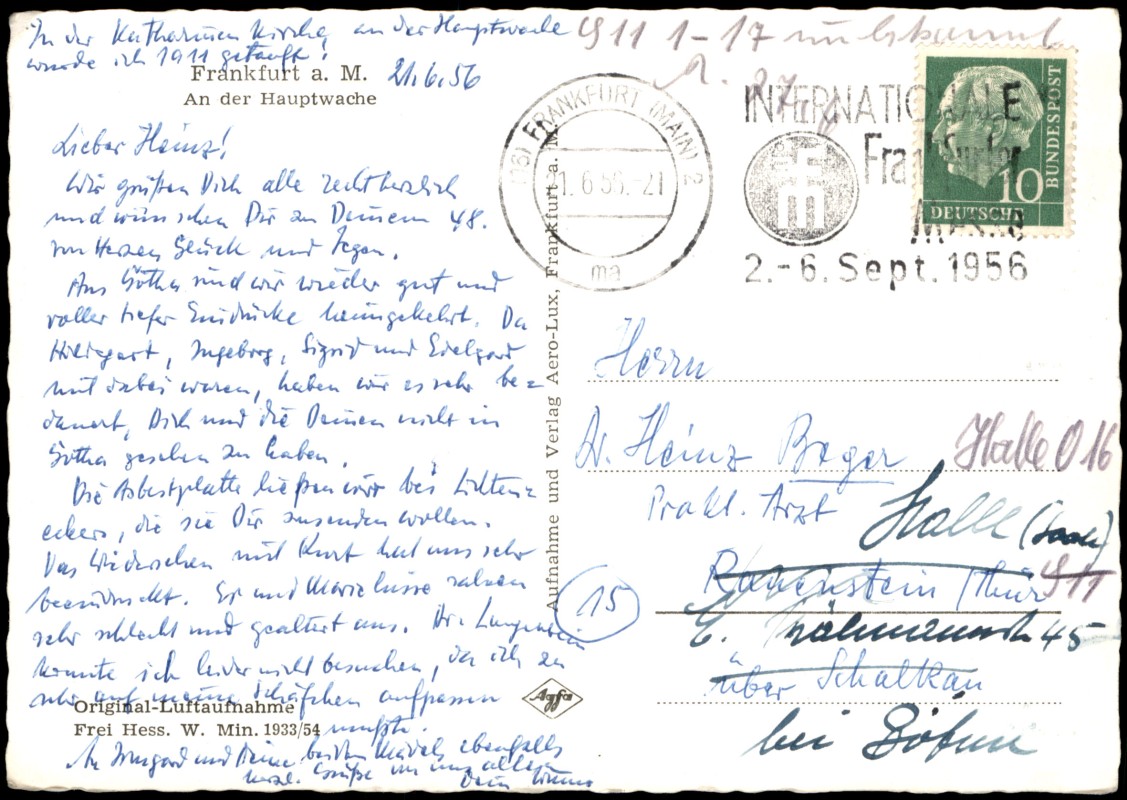 In der Katharinen Kirche, an der Hauptwache
wurde ich 1911 getauft!
Frankfurt a. M. 21.6.56
An der Hauptwache
Lieber Heinz!
Wir grüßen Dich alle recht herzlich
und wünschen Dir zu Deinem 48.
von Herzen Glück und Segen.
Aus Gotha sind wir wieder gut und
voller tiefer Eindrücke heimgekehrt. Da
Hildegart, Ingeborg, Sigrid und Edelgard
mit dabei waren, haben wir es sehr be=
dauert, Dich und die Deinen nicht in
Gotha gesehen zu haben.
Die Asbestplatte ließen wir bei Lichten=
eckers, die sie Dir zusenden wollen.
Das Wiedersehen mit Kurt hat uns sehr
beeindruckt. Er und Marieluise sahen
sehr schlecht und gealtert aus.
konnte ich leider nicht besuchen, da ich zu
sehr auf meine Schäfchen aufpassen
mußte.
Original-Luftaufnahme
Frei Hess. W. Min. 1933/54
An Irmgard und Deine beiden Mädels ebenfalls
herzl. Grüße von uns allen
Dein
Aufnahme und Verlag Aero-Lux, Frankfurt a. M.
Agfa
911 1-17 unbekannt
(16) FRANKFURT (MAIN) 2
1.6.56.-21
ma
INTERNATIONALE
Frankfurter
Messe
2.-6. Sept. 1956
DEUTSCHE
BUNDESPOST
10
Herrn
Dr. Heinz Beger Halle O 16
Prakt. Arzt Halle (Saale)
Rauenstein (Thür 911
15
45
über Schalkau
bei